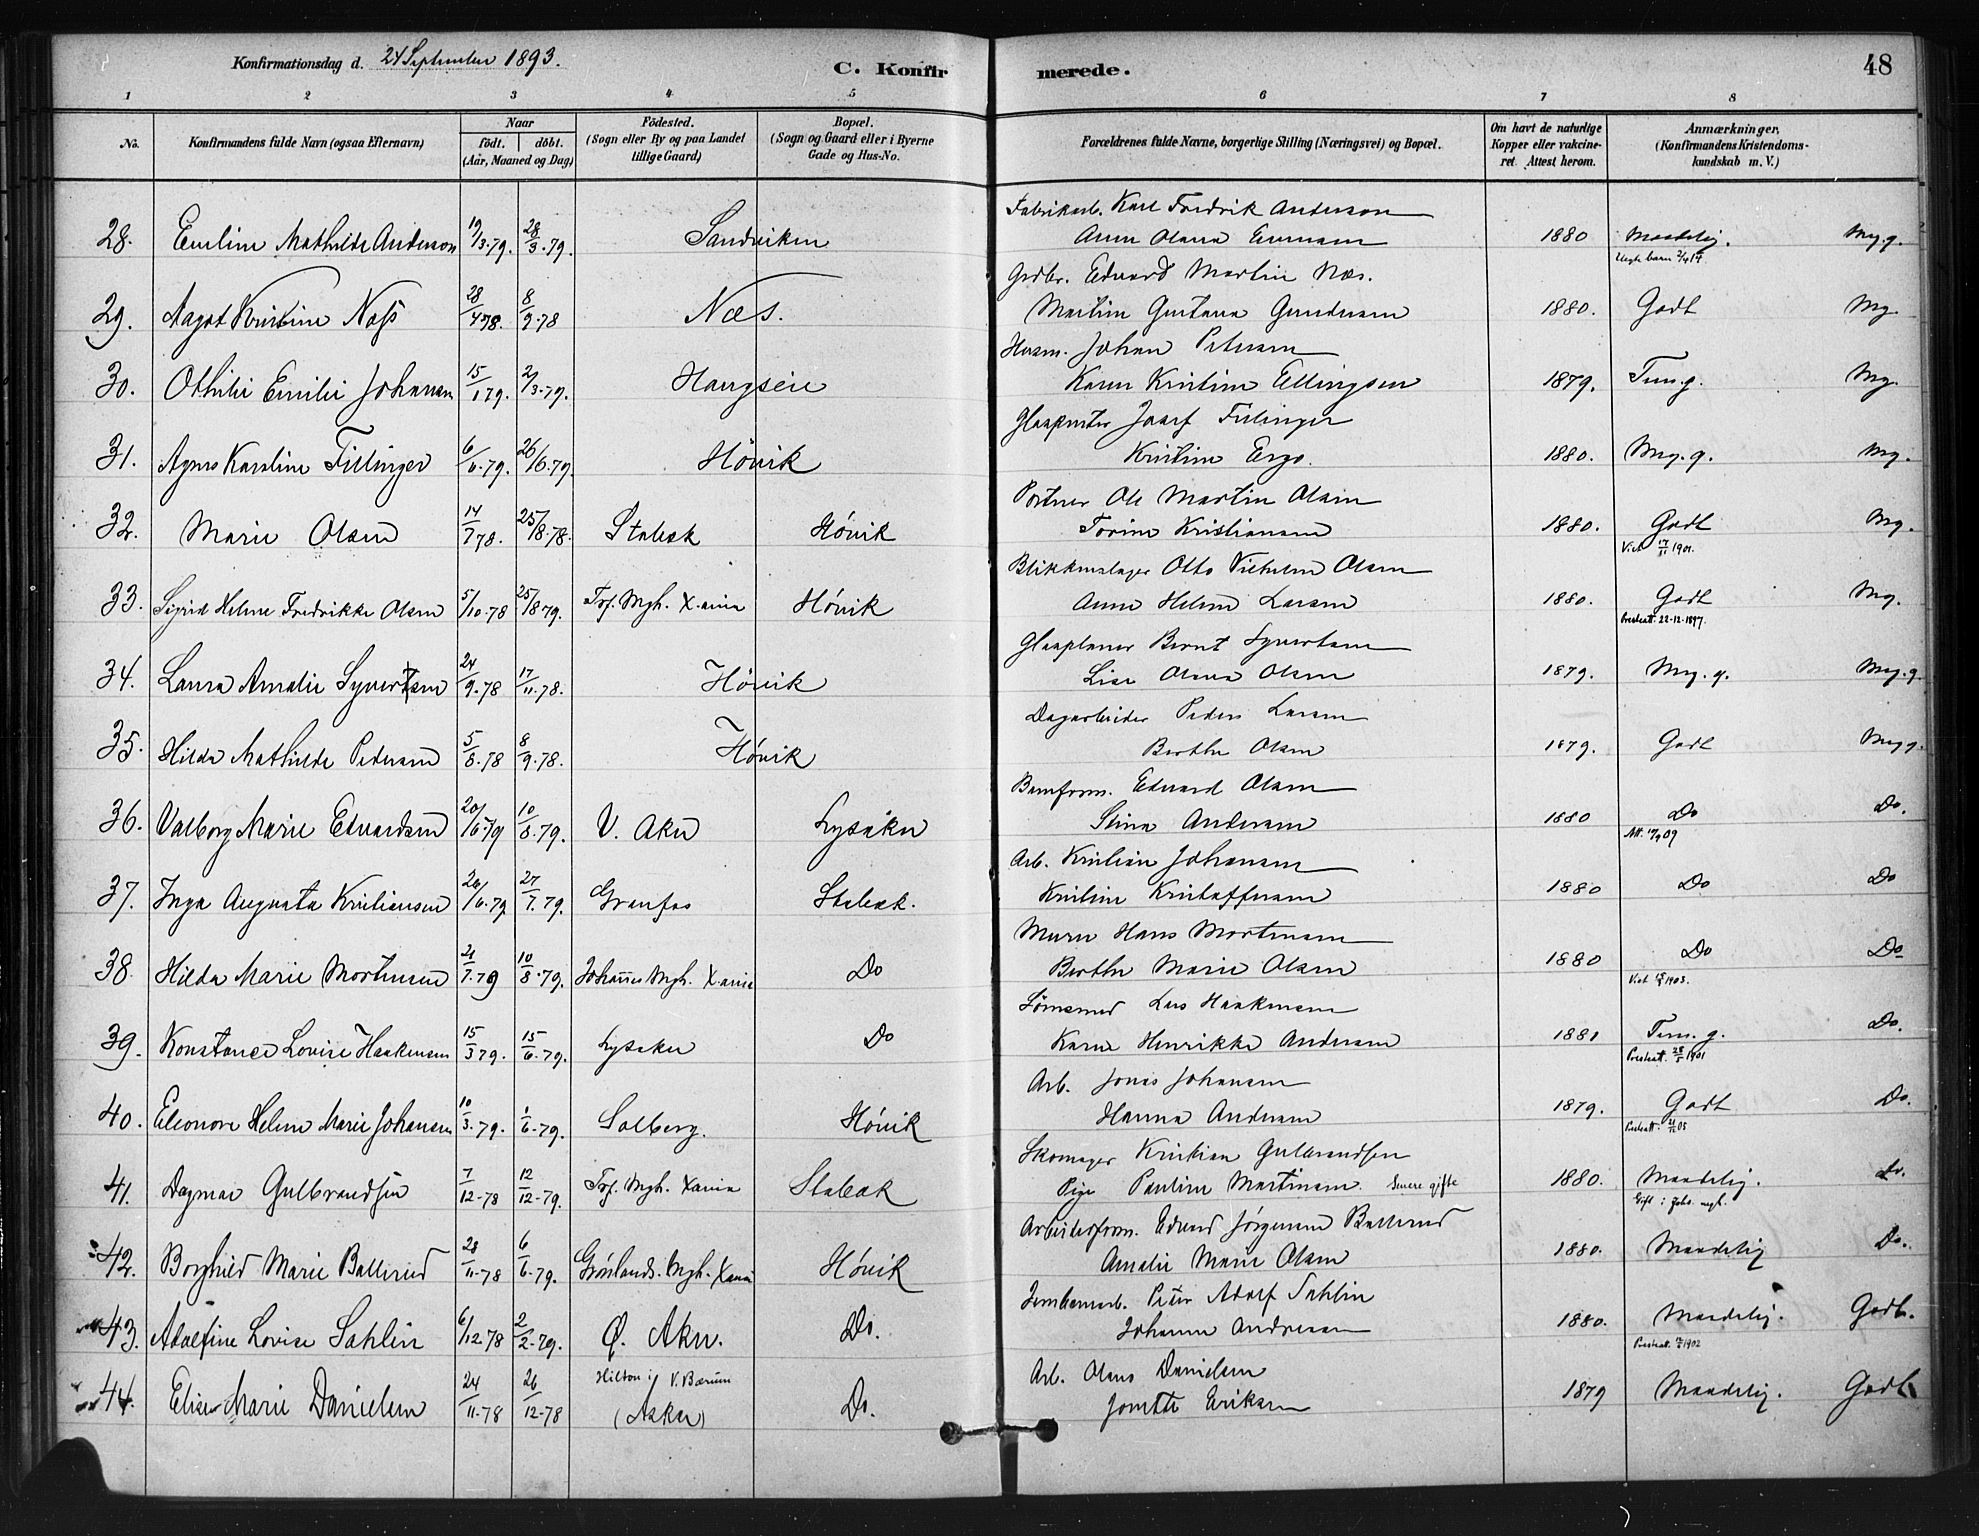 Konfirmationsdag d. 24 September 1893.
C. Konfirmerede.
48
1 2 3 4 5 6 7 8
No.
Konfirmandens fulde Navn (ogsaa Efternavn)
Naar
födt. döbt.
(Aar, Maaned og Dag)
Födested.
(Sogn eller By og paa Landet
tillige Gaard)
Bopæl.
(Sogn og Gaard eller i Byerne
Gade og Hus-No.
Forældrenes fulde Navne, borgerlige Stilling (Næringsvei) og Bopæl.
Om havt de naturlige
Kopper eller vakcine-
ret Attest herom.
Anmærkninger,
(Konfirmandens Kristendoms-
kundskab m. V.)
Fabrikarb. Karl Fredrik Anderson
28. Emline Mathilde Anderson 19/3.79. 28/3.79. Sandviken Anna Olava 1880 Maadelig. Mg.g.
Uegte barn
Grdbr. Edvard Martin Næs.
29. Aagot Kristine Næss 28/4.78. 8/9.78 Næs. Martine Gustava Gundersen 1880. Godt Mg.
Husm. Johan Petersen
30. Othilie Emilie Johansen 15/1 79. 2/3.79. Haugseie Karen Kristine Ellingsen 1879. Tem.g. Mg.
Josef Fillinger
31. Agnes Karoline Fillinger 6/6.79. 26/6.79. Hövik Kristine 1880. Mg.g. Mg.
Portner Ole Martin Olsen
32. Marie Olsen 14/7 78. 25/8.78. Stabæk Hövik Torine Kristiansen 1880. Godt Mg.
Viet 17/11 1901.
Blikkenslager Otto Vilhelm Olsen
33. Sigrid Helene Fredrikke Olsen 5/10.78 25/8.79. Trf. Mgh. X.ania Hövik Anne Helene Larsen 1880. Godt Mg.
Presteatt. 22-12-1897.
Bernt Syvertsen
34. Laura Amalie Syvertsen 24/9.78 17/11.78. Hövik Lise Olava Olsen 1879. Mg.g. Mg.g.
Dagarbeider Peder Larsen
35. Hilda Mathilde Pedersen 5/8.78 8/9.78. Hövik Berthe Olsen 1879. Godt Mg g.
Banform. Edvard Olsen
36. Valborg Marie Edvardsen 20/6.79 10/8.79. V. Aker Lysaker Stina Andersen 1880 Do Do.
Arb. Kristian Johansen
37. Inga Augusta Kristiansen 26/6.79 27/7.79. Granfos Stabæk. Kristine Kristoffersen 1880 Do Do
Murer Hans Mortensen
38. Hilda Marie Mortensen 21/7.79 10/8.79. Johannes Mgh. X.ania Do Berthe Marie Olsen 1880 Do Do
Lars Haakensen
39. Konstance Lovise Haakensen 15/3 79. 15/6.79. Lysaker Do Karen Henrikke Andersen 1881 Tem.g. Do.
Presteatt. 28/5 1901
Arb. Jonas Johansen
40. Eleonore Helene Marie Johansen 10/3.79. 1/6.79. Solberg. Hövik Hanna Andersen 1879. Godt Do.
Skomager Kristian Gulbrandsen
41. Dagmar Gulbrandsen 7/12.78 12/12.79. Trf. Mgh. Xania Stabæk Pige Pauline Martinsen. Senere gifte 1880. Maadelig. Do.
Gift i Johs. mgh.
Arbeiderform. Edvard Jörgensen Ballerud
42. Borghild Marie Ballerud 28/11.78 6/6.79. Grönlands. Mgh. Xania Hövik Amalie Marie Olsen 1880. Maadelig Do.
Jernbanearb. Peter Adolf Sahlin
43. Adolfine Lovise Sahlin 6/12 78 2/2.79. Ö. Aker. Do. Johanne Andresen 1880. Maadelig. Godt.
Arb. Olaus Danielsen
44. Elise Marie Danielsen 24/11.78 26/12.78 Hilton i V. Bærum (Asker) Do. Jonette Eriksen 1879 Maadelig. Godt